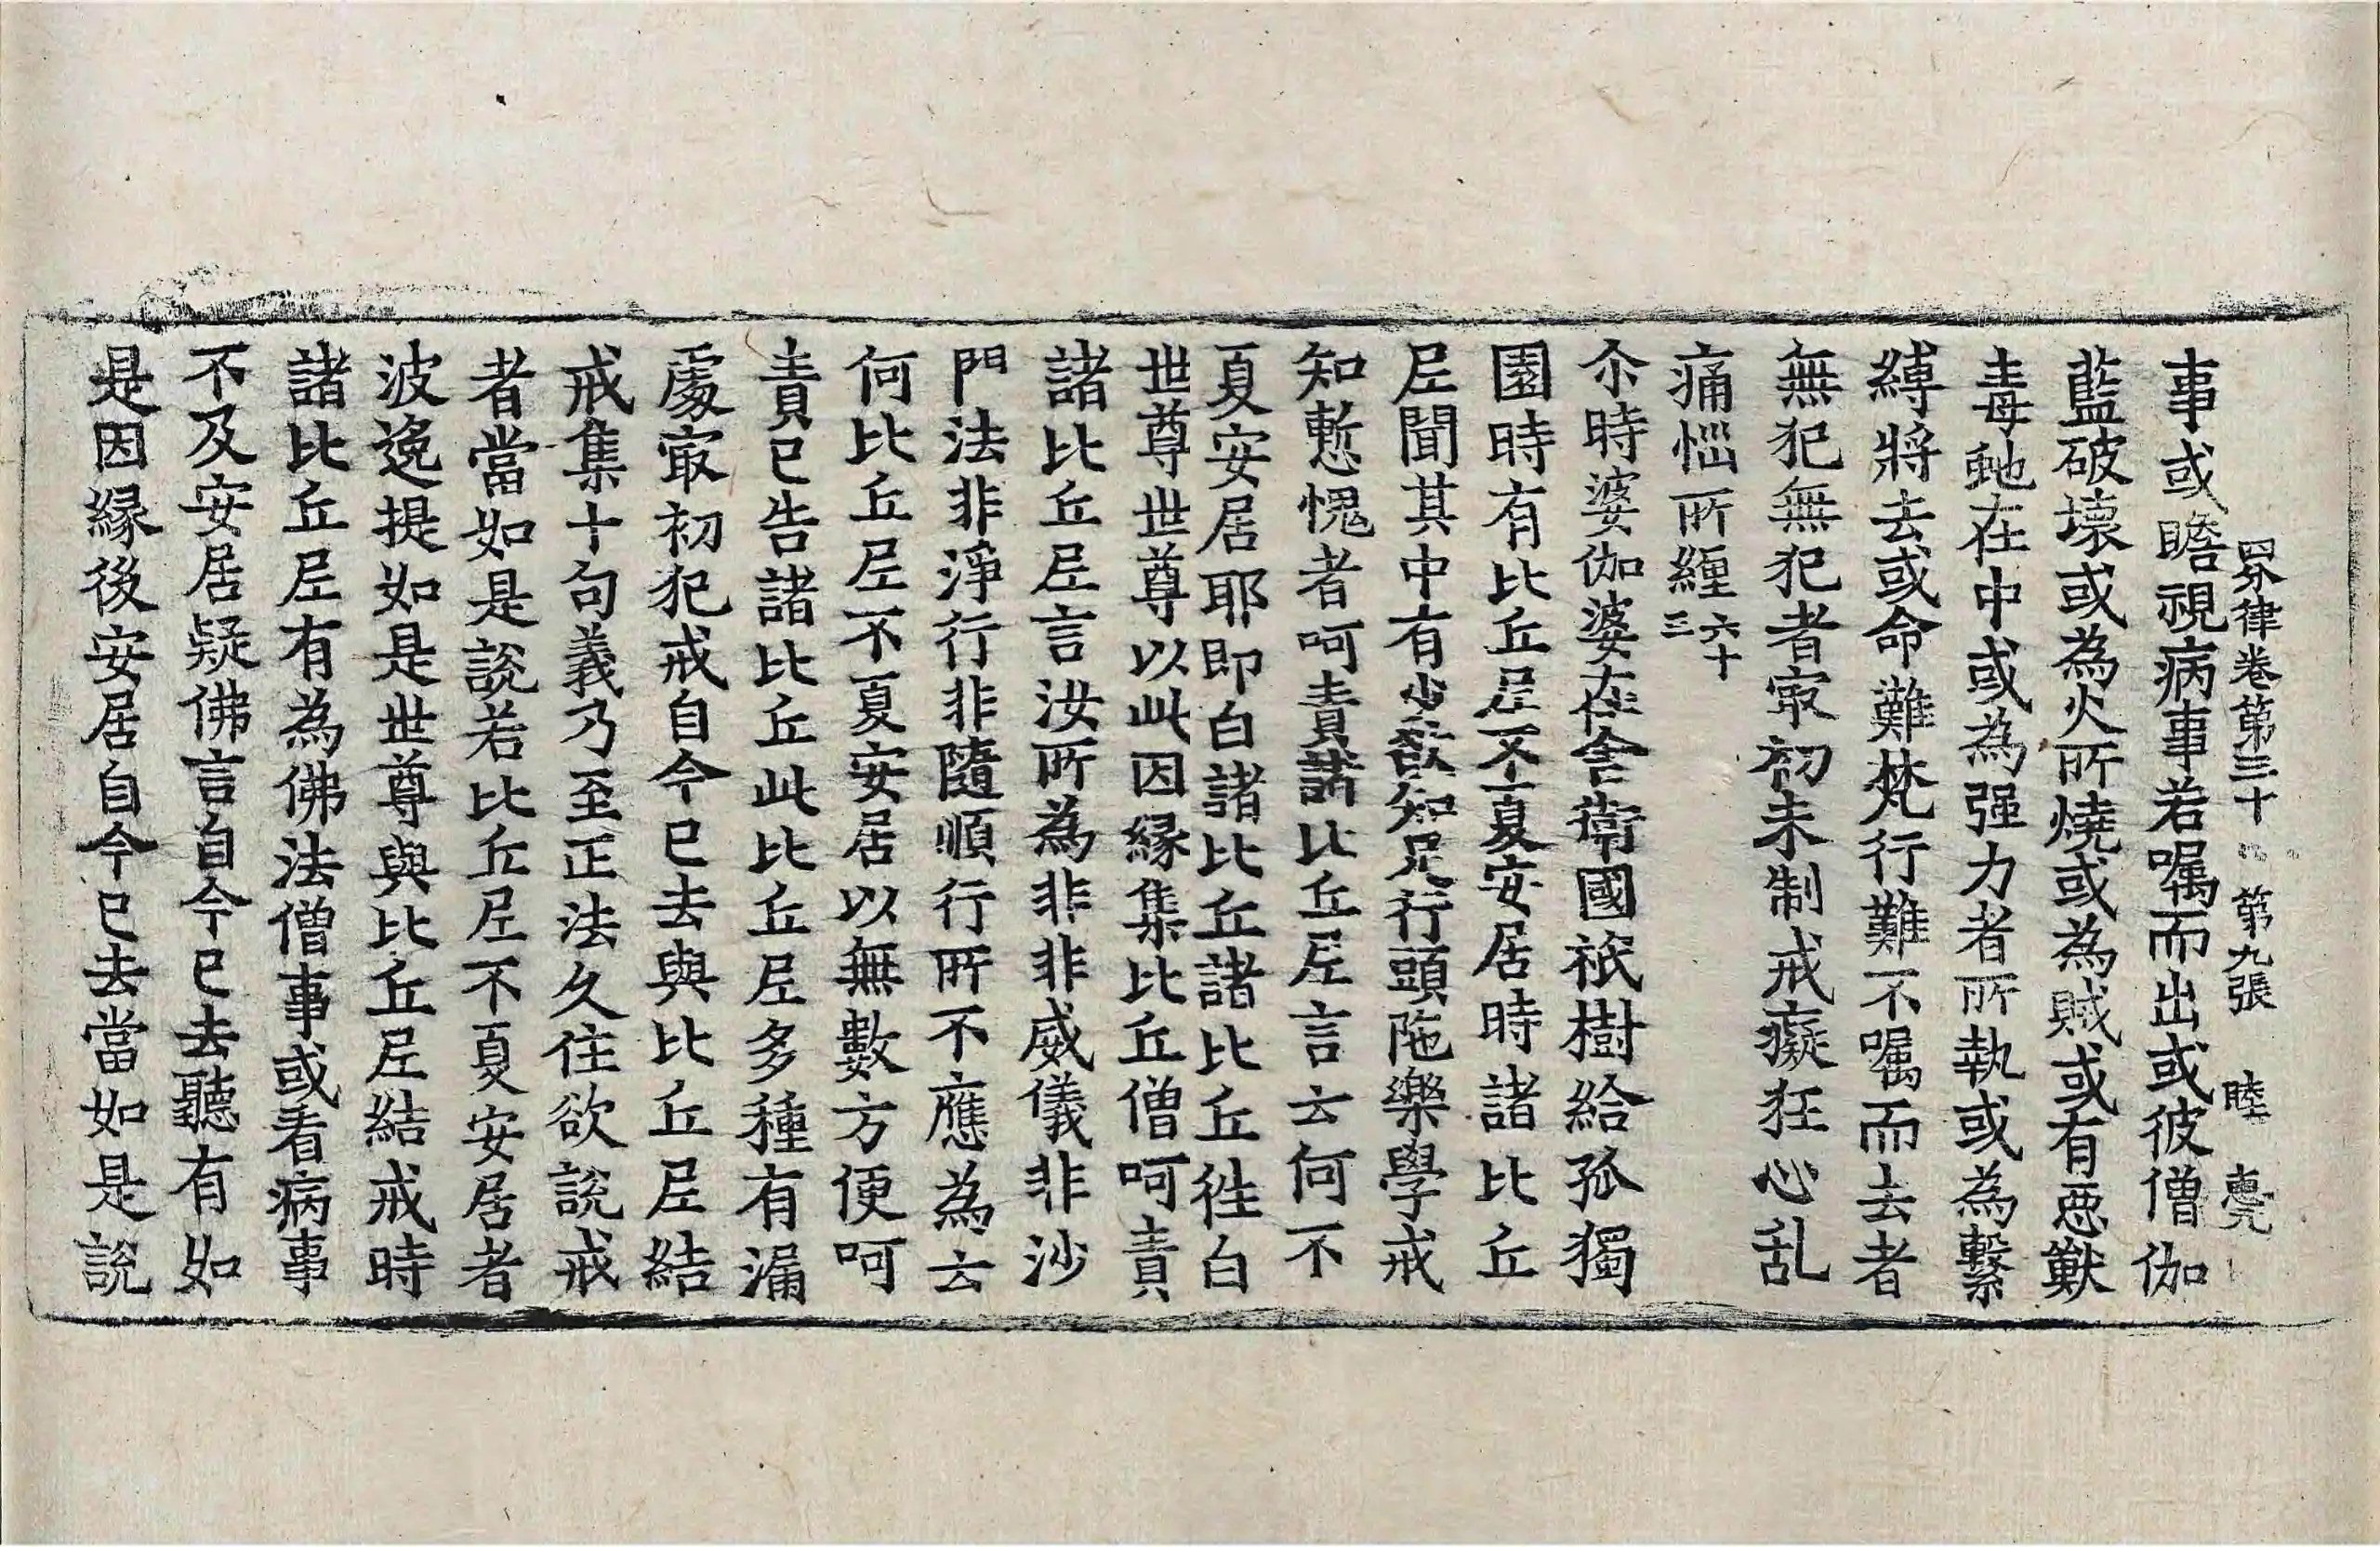 四分律卷第三十 第九張 睦 亮
事或瞻視病事若囑而出或彼僧伽
藍破壞或為火所燒或為賊或有惡獸
毒虵在中或為强力者所執或為繫
縛將去或命難梵行難不囑而去者
無犯無犯者㝡初未制戒癡狂心乱
痛惱所纏六十三
尒時婆伽婆在舍衛國祇樹給孤獨
園時有比丘尼不夏安居時諸比丘
尼聞其中有少欲知足行頭陁樂學戒
知慙愧者呵責諸比丘尼言云何不
夏安居耶即白諸比丘諸比丘往白
世尊世尊以此因緣集比丘僧呵責
諸比丘尼言汝所為非非威儀非沙
門法非淨行非隨順行所不應為云
何比丘尼不夏安居以無數方便呵
責已告諸比丘此比丘尼多種有漏
處㝡初犯戒自今已去與比丘尼結
戒集十句義乃至正法久住欲說戒
者當如是說若比丘尼不夏安居者
波逸提如是世尊與比丘尼結戒時
諸比丘尼有為佛法僧事或看病事
不及安居疑佛言自今已去聽有如
是因緣後安居自今已去當如是說